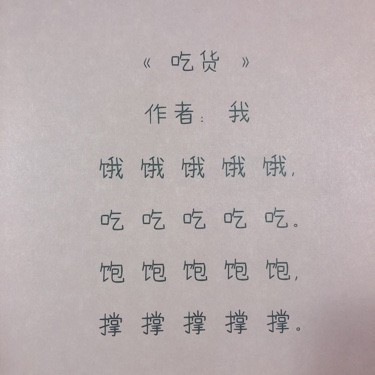 《 吃货 》
作者: 我
饿 饿 饿 饿 饿,
吃 吃 吃 吃 吃。
饱 饱 饱 饱 饱,
撑 撑 撑 撑 撑。